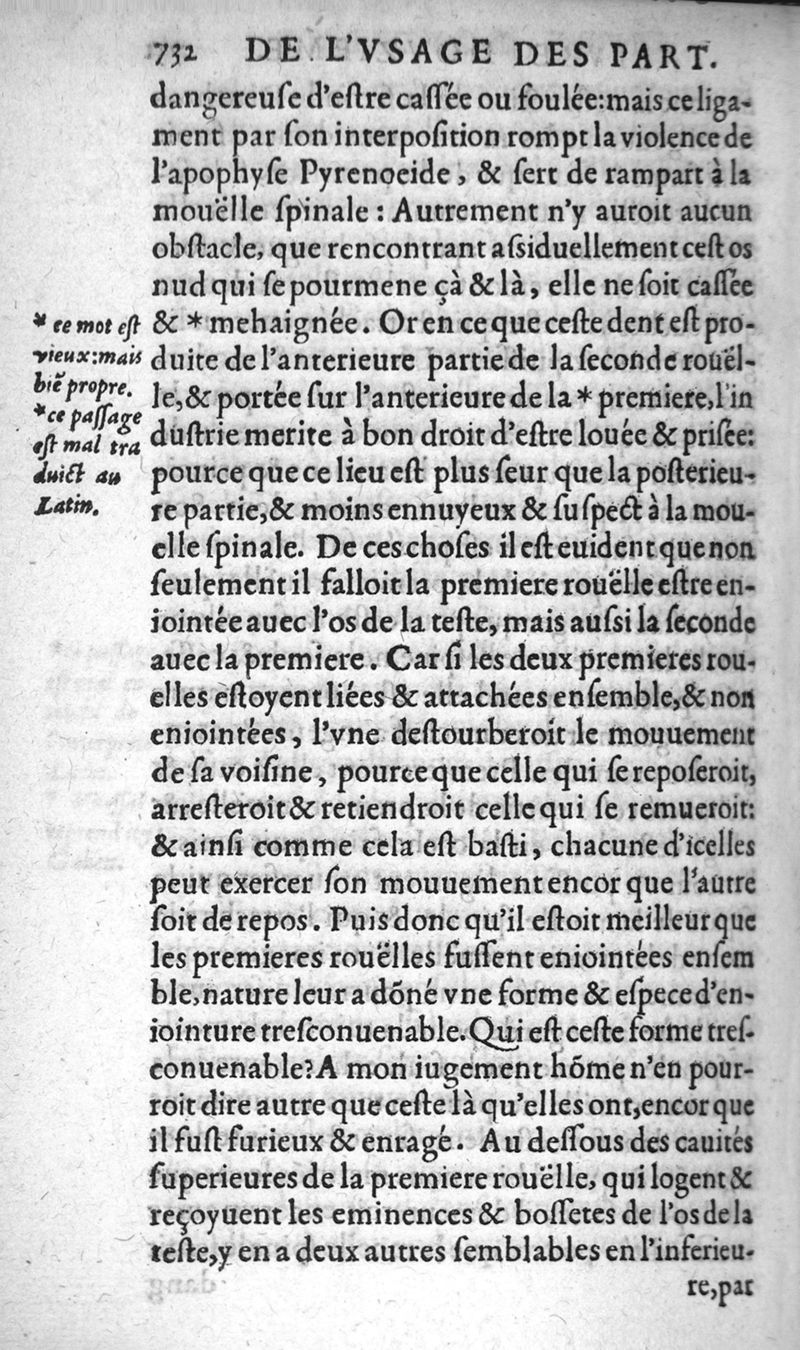 732 DE L'VSAGE DES PART.
dangereuſe d'eſtre caſſée ou foulée:mais ce liga-
ment par ſon interpoſition rompt la violence de
l'apophyſe Pyrenoeide, & ſert de rampart à la
mouëlle ſpinale : Autrement n'y auroit aucun
obſtacle, que rencontrant aſsiduellement ceſt os
nud qui ſe pourmene çà & là, elle ne ſoit caſſée
& * mehaignée. Or en ce que ceſte dent eſt pro-
duite de l'anterieure partie de la ſeconde rouël-
le,& portée ſur l'anterieure de la * premiere,l'in
duſtrie merite à bon droit d'eſtre louée & priſée:
pource que ce lieu eſt plus ſeur que la poſterieu-
re partie,& moins ennuyeux & ſuſpect à la mou-
elle ſpinale. De ces choſes il eſt euident que non
ſeulement il falloit la premiere rouëlle eſtre en-
iointée auec l'os de la teſte, mais auſsi la ſeconde
auec la premiere. Car ſi les deux premieres rou-
elles eſtoyent liées & attachées enſemble,& non
eniointées, l'vne deſtourberoit le mouuement
de ſa voiſine, pource que celle qui ſe repoſeroit,
arreſteroit & retiendroit celle qui ſe remueroit:
& ainſi comme cela eſt baſti, chacune d'icelles
peut exercer ſon mouuement encor que l'autre
ſoit de repos. Puis donc qu'il eſtoit meilleur que
les premieres rouëlles fuſſent eniointées enſem
ble,nature leur a dõné vne forme & eſpece d'en-
iointure treſconuenable. Qui eſt ceſte forme treſ-
conuenable? A mon iugement hõme n'en pour-
roit dire autre que ceſte là qu'elles ont,encor que
il fuſt furieux & enragé. Au deſſous des cauités
ſuperieures de la premiere rouëlle, qui logent &
reçoyuent les eminences & boſſetes de l'os de la
teſte,y en a deux autres ſemblables en l'inferieu-
re,par
* ce mot eſt
vieux:mais
biẽ propre.
*ce paſſage
eſt mal tra
duict au
Latin.